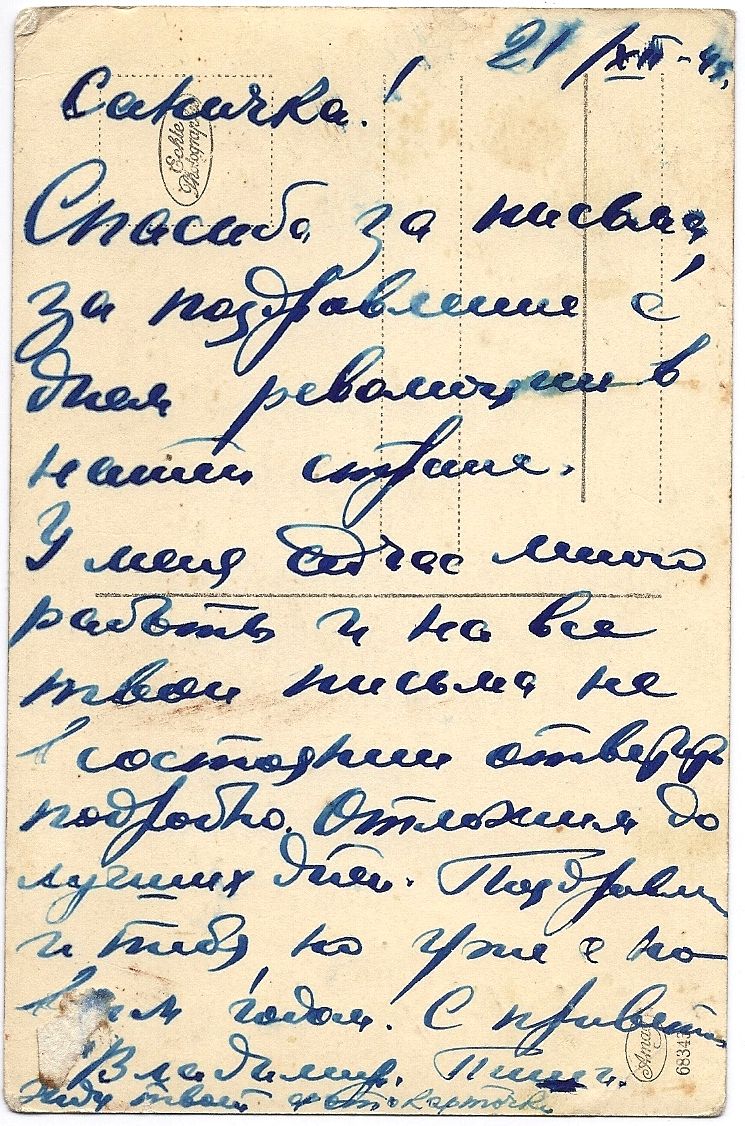 21/XII-45.
Саничка!
Echte
Photographie
Спасибо за письма,
за поздравление с
днем революции в
нашей стране.
У меня сейчас много
работы и на все
твои письма не
в состоянии ответить
подробно. Отложим до
лучших дней. Поздравляю
и тебя но уже с но
вым годом. С приветом
Владимир. Пиши.
Жду твоей фотокарточки
6834